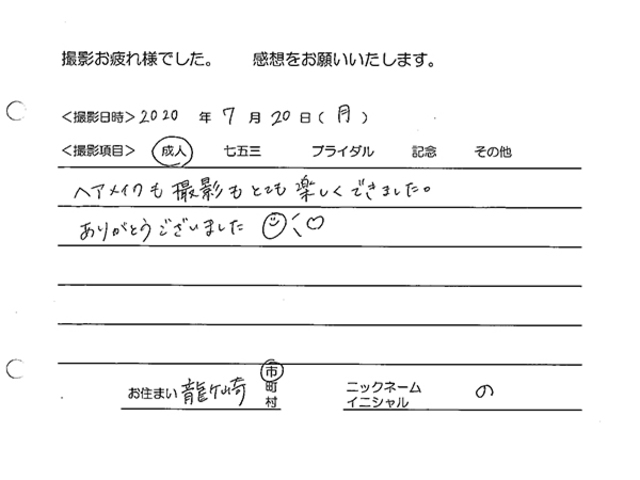 撮影お疲れ様でした。 感想をお願いいたします。
<撮影日時> 2020 年 7 月 20 日 ( 月 )
<撮影項目> 成人 七五三 ブライダル 記念 その他
ヘアメイクも撮影もとても楽しくできました。
ありがとうございました
お住まい 龍ケ崎 市 町 村 ニックネーム イニシャル の